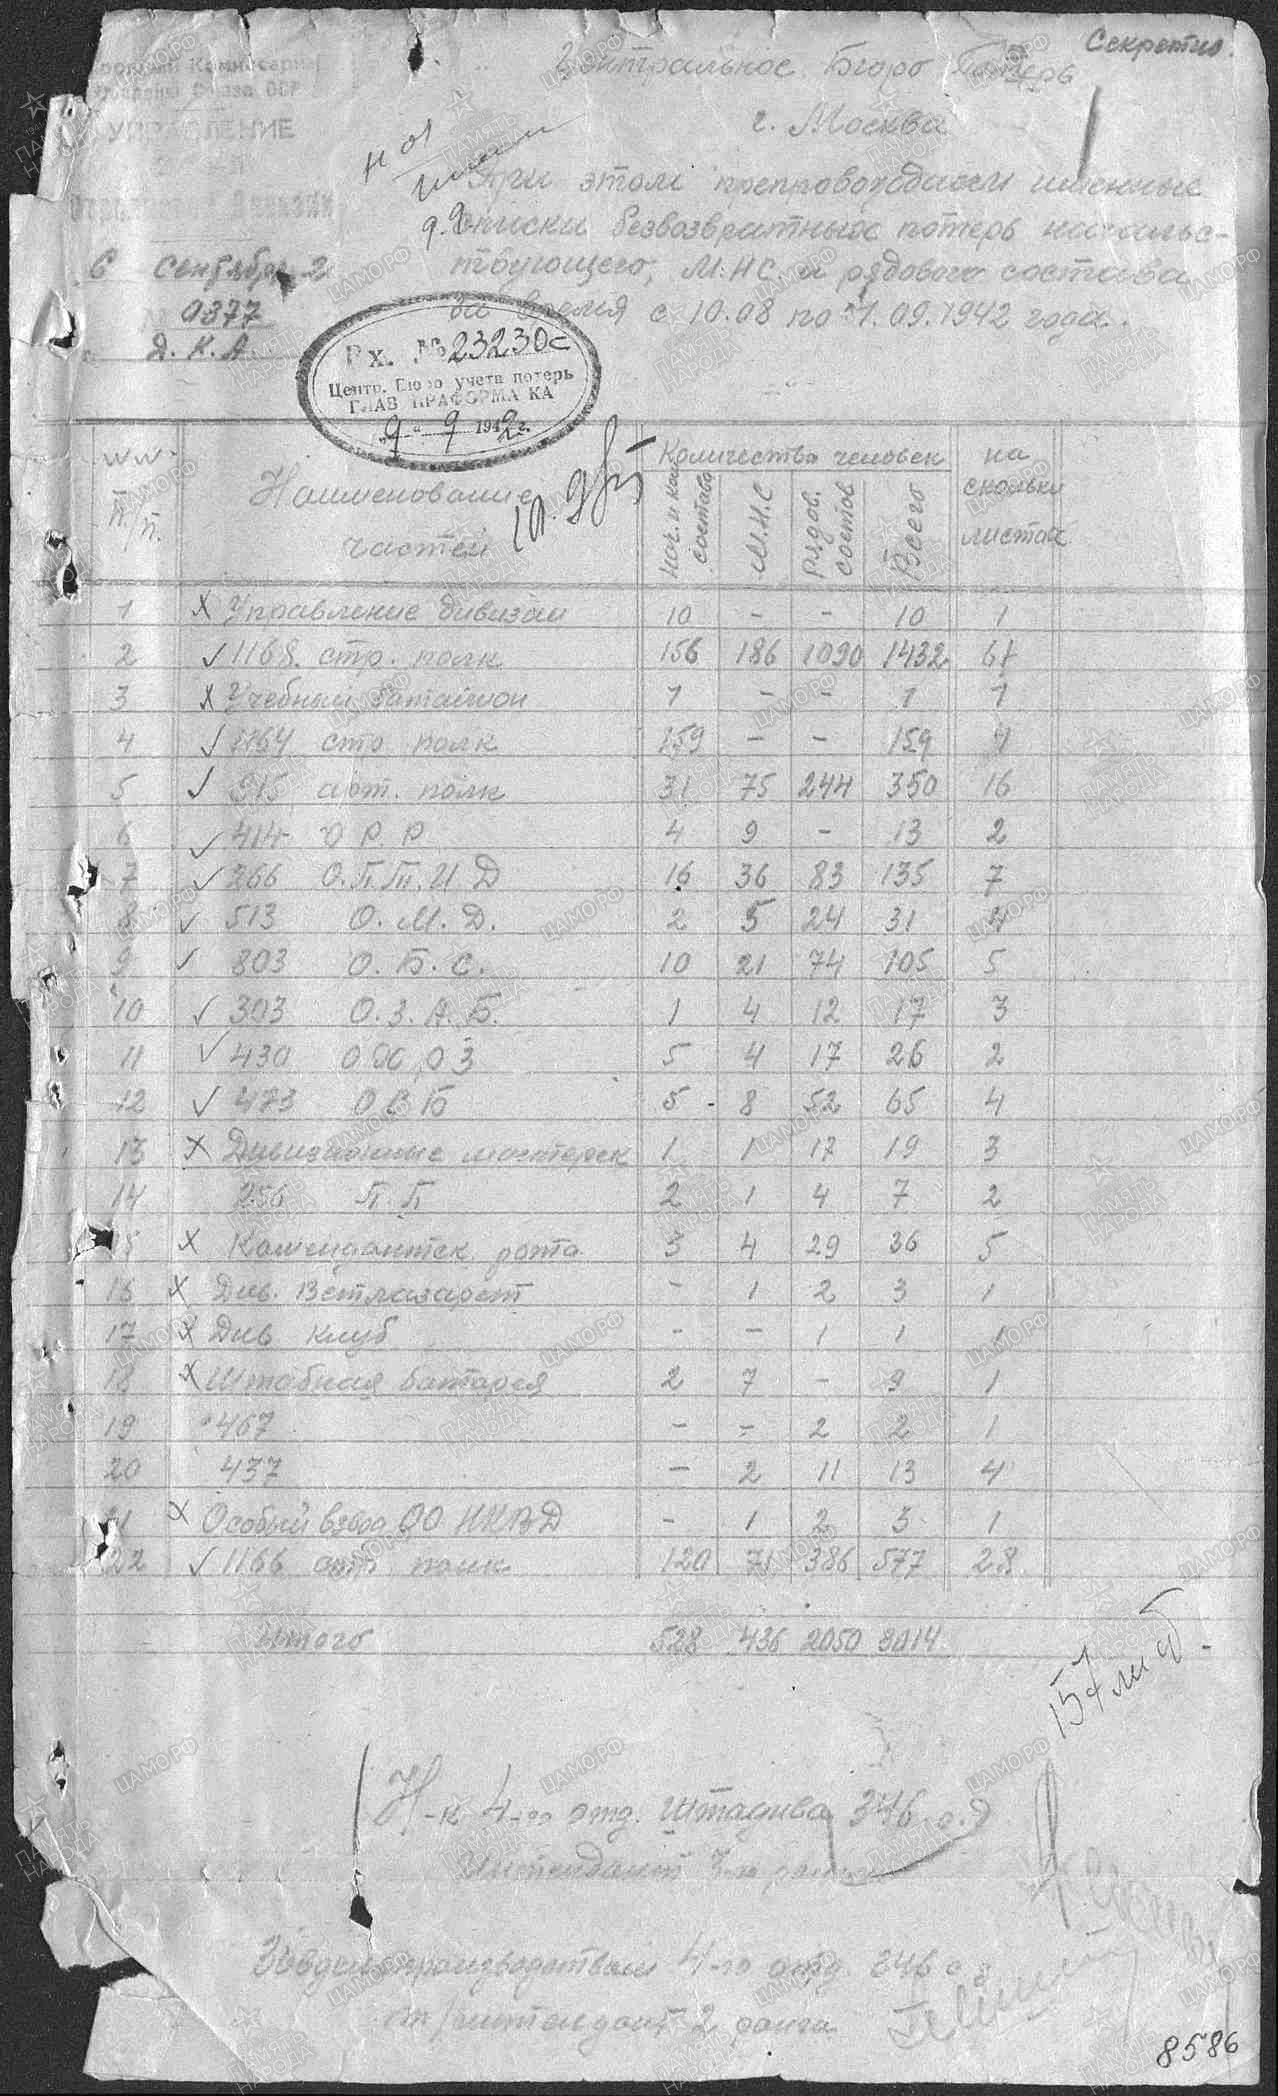 Секретно.
Центральное Бюро Потерь
г. Москва
УПРАВЛЕНИЕ
При этом препровождаем именные
списки безвозвратных потерь началь-
ствующего, М.Н.С. и рядового состава
за время с 10.08 по 1.09.1942 года.
6 сентября 2
0377
Д.К.А.
Вх. №23230с
Центр. Бюро учета потерь
ГЛАВ УПРАФОРМА КА
„9“ 9 1942г.
№ №
п/п.
Наименование
частей
Количество человек
нач. и ком. состава
М.Н.С
Рядов. состав
Всего
на
скольки
листах
1 х Управление дивизии 10 - - 10 1
2 ✓ 1168 стр. полк 156 186 1090 1432 67
3 х Учебный батальон 1 - - 1 1
4 ✓ 1164 стр полк 159 - - 159
5 ✓ 915 арт. полк 31 75 244 350 16
6 ✓ 414 О Р Р 4 9 - 13 2
7 ✓ 266 О.П.Т.И Д 16 36 83 135 7
8 ✓ 513 О. М. Д. 2 5 24 31
9 ✓ 803 О. Б. С. 10 21 74 105 5
10 ✓ 303 О. З. А. Б. 1 4 12 17 3
11 ✓ 430 5 4 17 26 2
12 ✓ 473 5 - 8 52 65 4
13 х Дивизионные мастерск 1 1 17 19 3
14 256 П. П 2 1 4 7 2
15 х Комендантск. рота 3 4 29 36 5
16 х Див. Ветлазарет - 1 2 3 1
17 х Див клуб - - 1 1 1
18 х Штабная батарея 2 7 - 9 1
19 467 - - 2 2 1
20 437 - 2 11 13 4
21 х Особый взвод ОО НКВД - 1 2 3 1
22 ✓ 1166 стр. полк 120 71 386 577 28
Итого 528 436 2050 3014
157 лист
Н-к 4-го отд. Штадива 346 с.д
Интендант 3-го ранга
Зав. делопроизводством 4-го отд. 346 с д
интендант 2 ранга
8586
ПАМЯТЬ НАРОДА
ЦАМО.РФ